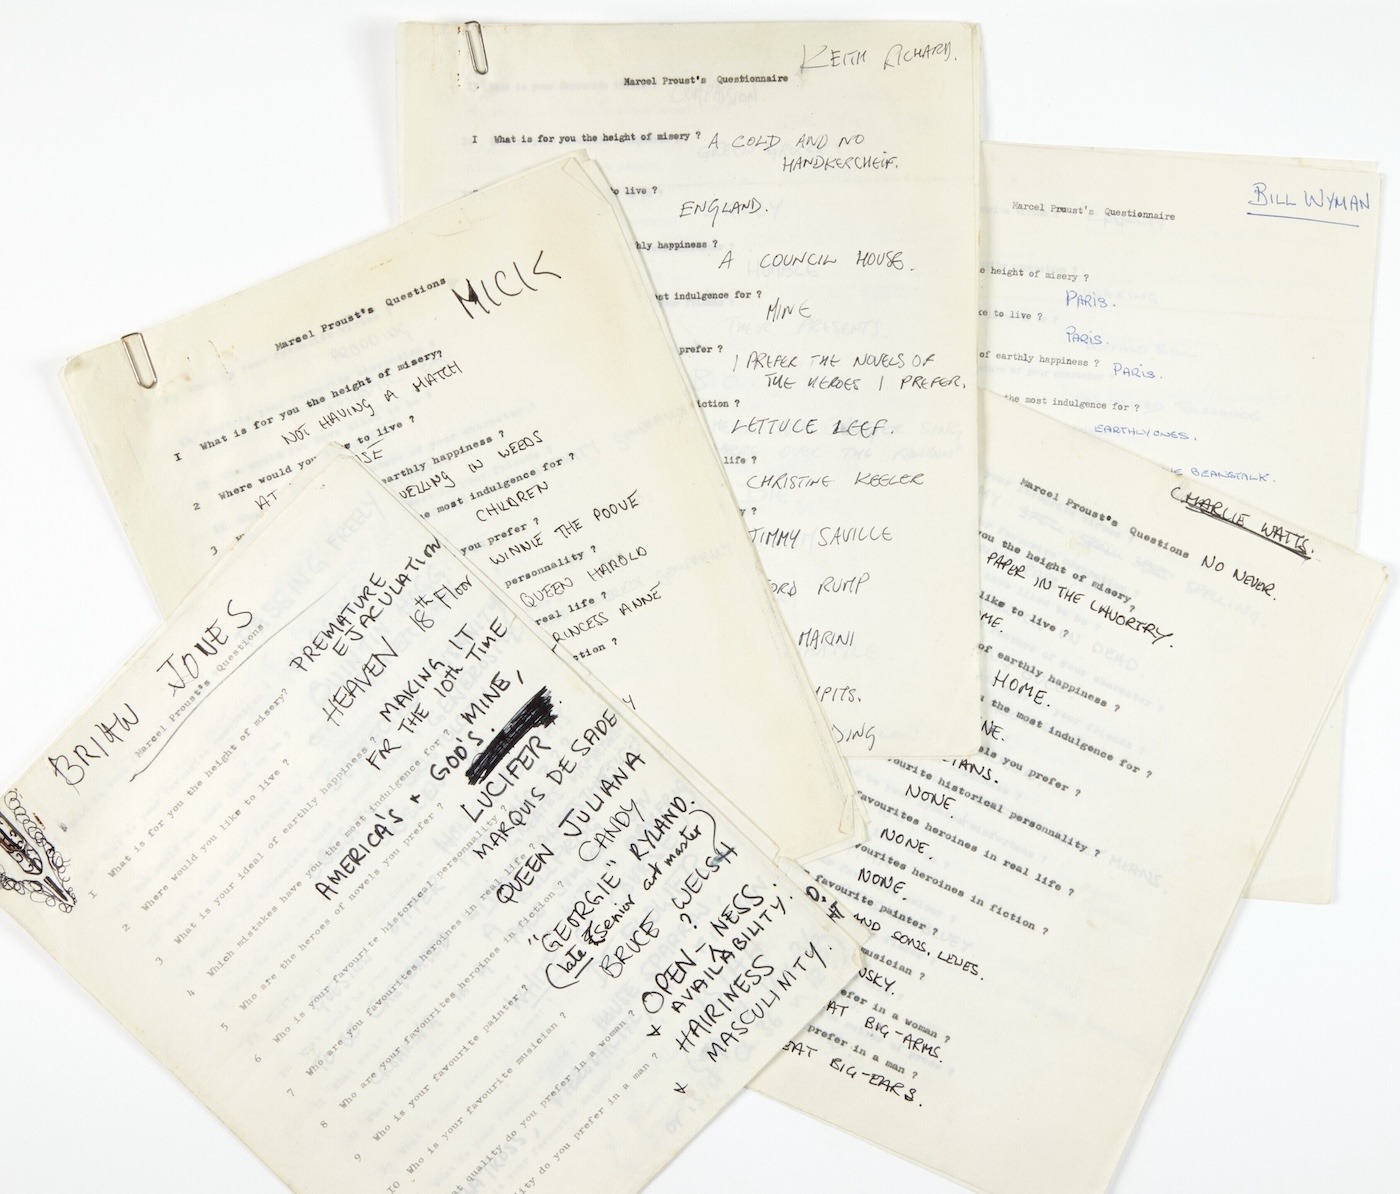 KEITH RICHARD.
Marcel Proust's Questionnaire
I What is for you the height of misery ? A COLD AND NO
HANDKERCHEIF.
to live ?
ENGLAND.
hly happiness ?
A COUNCIL HOUSE.
st indulgence for ?
MINE
prefer ?
I PREFER THE NOVELS OF
THE HEROES I PREFER.
iction ?
LETTUCE LEEF.
life ?
CHRISTINE KEELER
y ?
JIMMY SAVILLE
FORD RUMP
MARINI
MPITS.
DING
BILL WYMAN
Marcel Proust's Questionnaire
e height of misery ?
PARIS.
ke to live ?
PARIS.
of earthly happiness ? PARIS.
the most indulgence for ?
EARTHLY ONES.
BEANSTALK.
MICK
Marcel Proust's Questions
I What is for you the height of misery?
NOT HAVING A MATCH
2 Where would you
to live ?
AT
SE
3
earthly happiness ?
VELLING IN WEEDS
e most indulgence for ?
CHILDREN
you prefer ?
WINNIE THE POOUE
personnality ?
QUEEN HAROLD
real life ?
RINCESS ANNE
ction ?
CHARLIE WATTS.
Marcel Proust's Questions
NO NEVER.
you the height of misery ?
PAPER IN THE LAVORTRY.
like to live ?
ME.
of earthly happiness ?
HOME.
the most indulgence for ?
NE.
els you prefer ?
IANS.
ourite historical personnality ?
NONE.
favourites heroines in real life ?
NONE.
ourites heroines in fiction ?
NONE.
favourite painter ?
AND SONS, LEWES.
usician ?
USKY.
efer in a woman ?
AT BIG-ARMS.
prefer in a man ?
EAT BIG-EARS.
BRIAN JONES
Marcel Proust's Questions
I What is for you the height of misery?
PREMATURE
EJACULATION
2 Where would you like to live ?
HEAVEN 18th FLOOR
3 What is your ideal of earthly happiness ?
MAKING IT
FOR THE 10th TIME
4 Which mistakes have you the most indulgence for ?
AMERICA'S + GOD'S. MINE,
5 Who are the heroes of novels you prefer ?
LUCIFER
6 Who is your favourite historical personnality ?
MARQUIS DE SADE
7 Who are you favourites heroines in real life ?
QUEEN JULIANA
8 Who are your favourites heroines in fiction ?
CANDY
9 Who is your favourite painter ?
"GEORGIE" RYLAND.
(late senior art master)
10 Who is your favourite musician ?
BRUCE ? WELSH
at quality do you prefer in a woman ?
OPEN-NESS
AVAILABILITY.
ity do you prefer in a man ?
HAIRINESS
MASCULINITY.